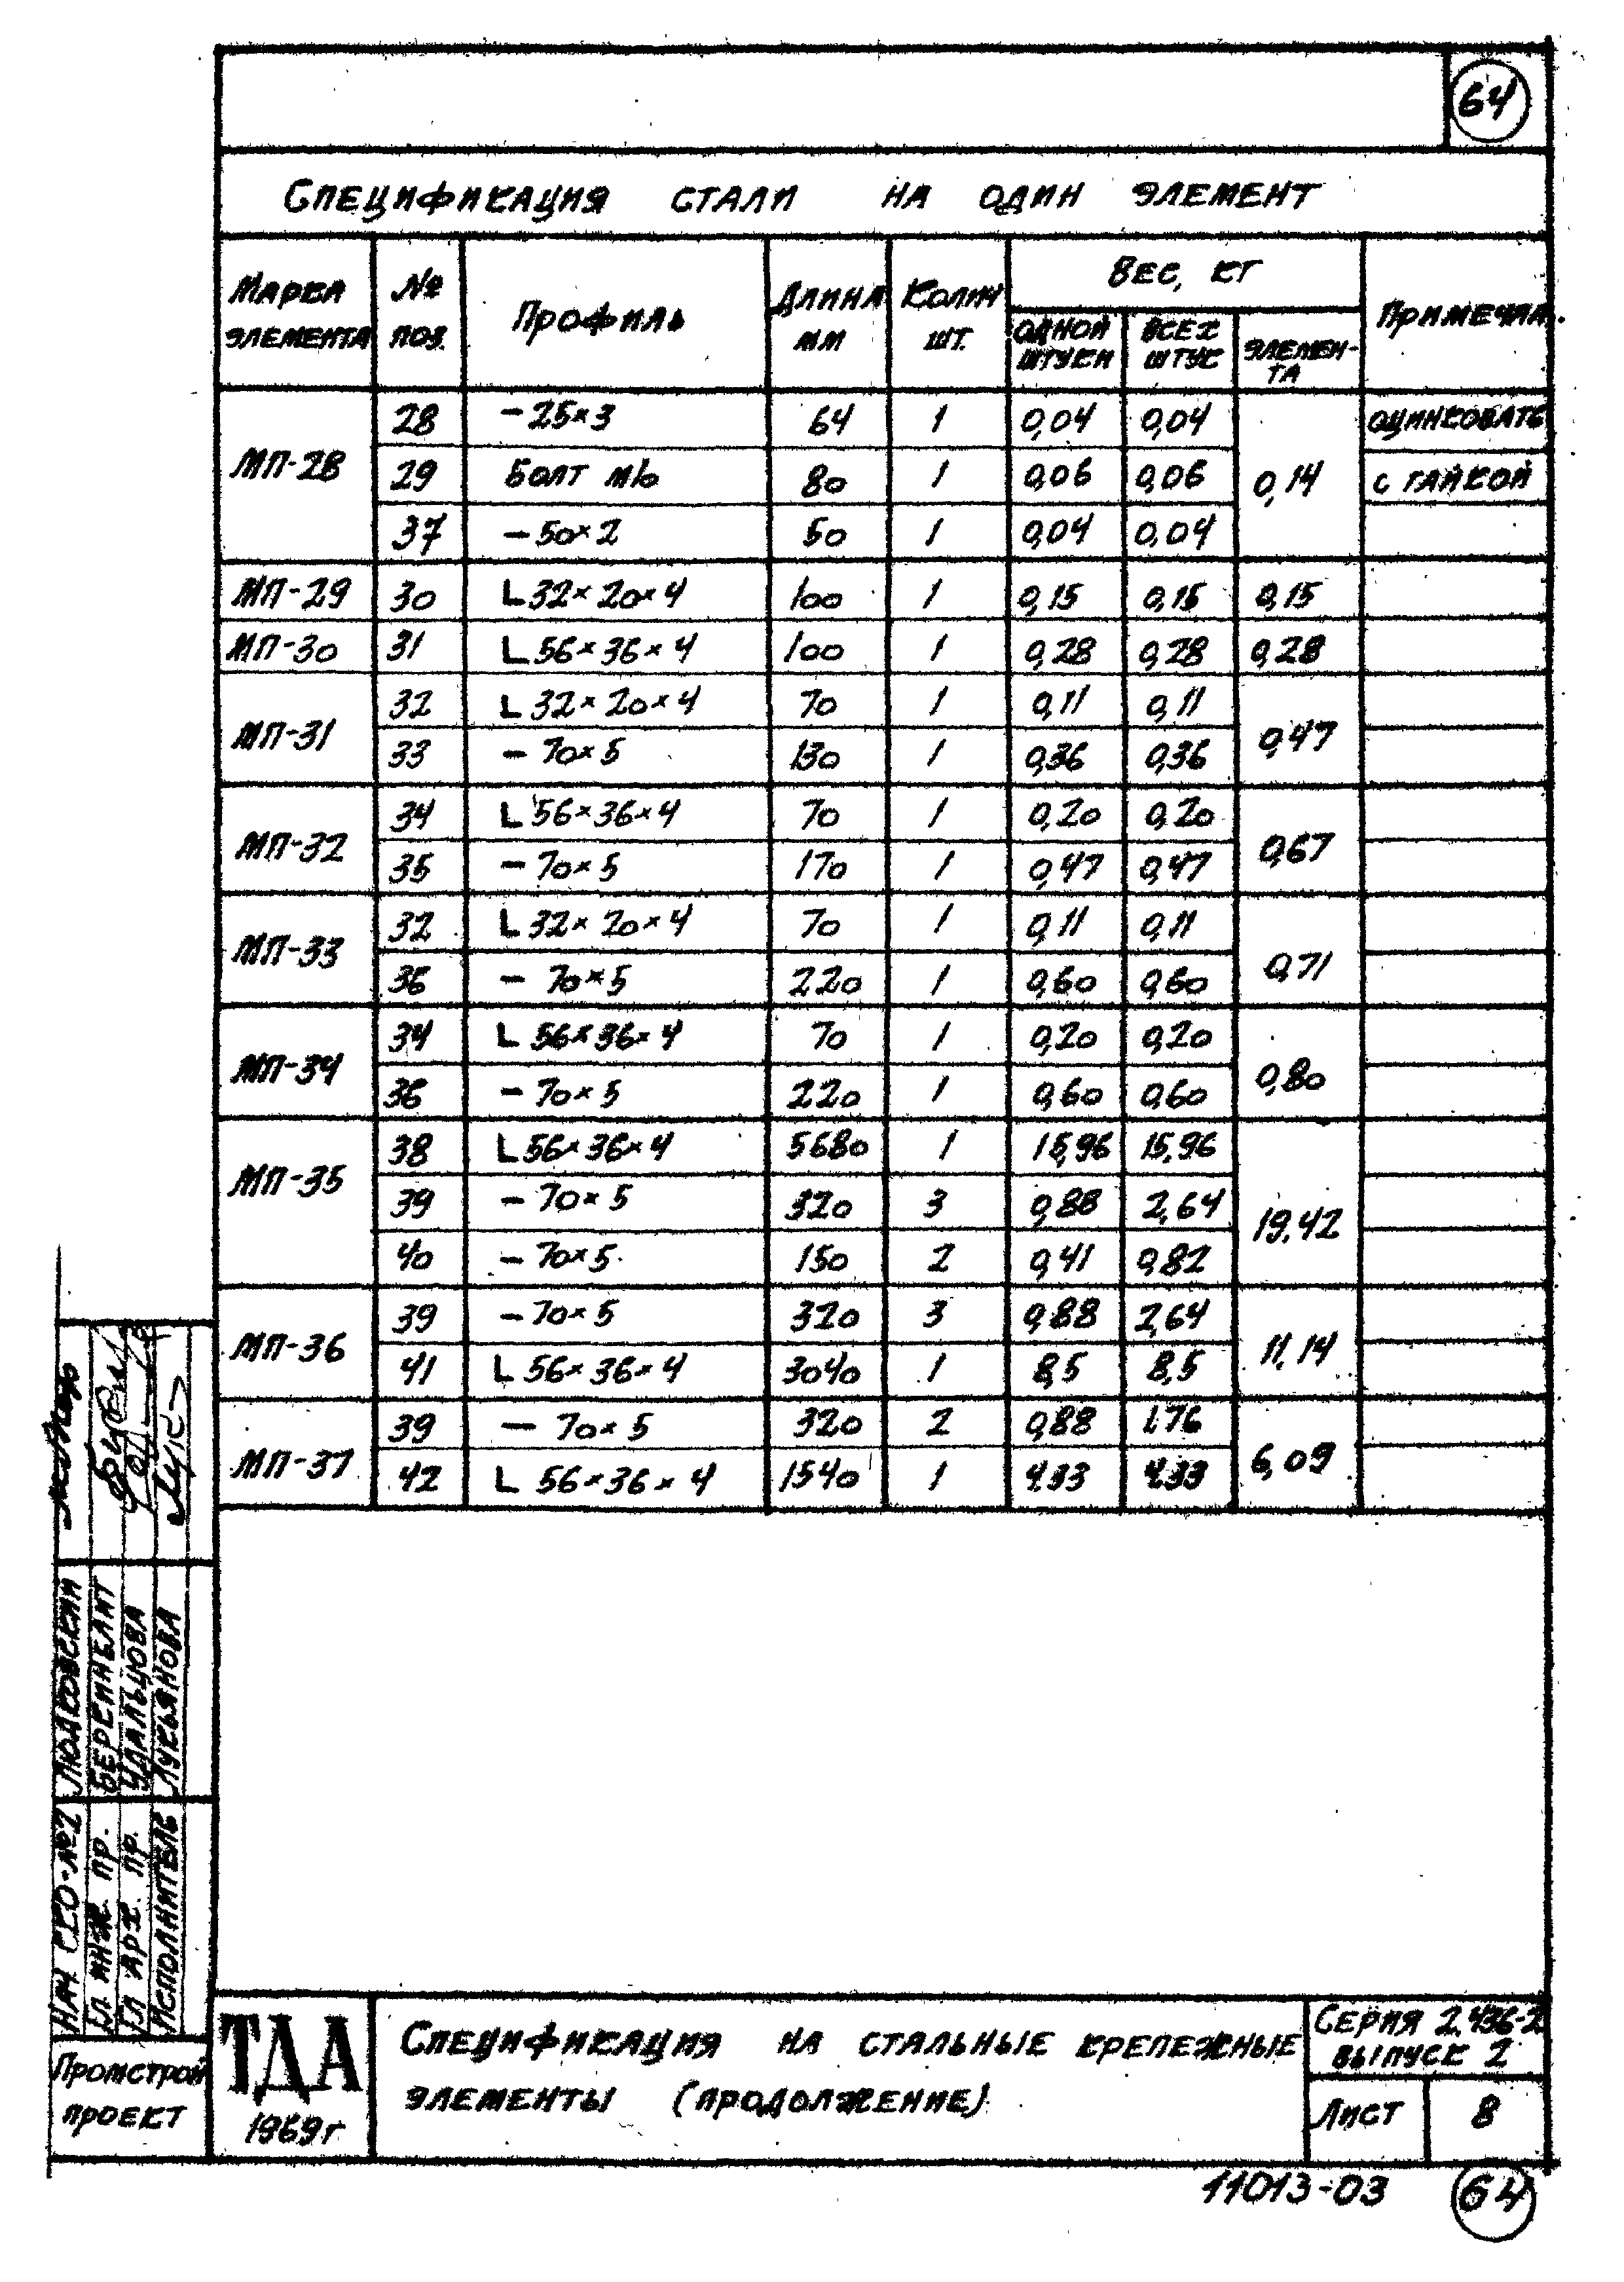 64
Спецификация стали на один элемент
Марка элемента № поз. Профиль Длина мм Колич шт. Вес, кг Примечан.
одной штуки всех штук элемен-та
МП-28 28 – 25×3 64 1 0,04 0,04 0,14 оцинковать
29 Болт м10 80 1 0,06 0,06 с гайкой
37 – 50×2 50 1 0,04 0,04
МП-29 30 L 32×20×4 100 1 0,15 0,15 0,15
МП-30 31 L 56×36×4 100 1 0,28 0,28 0,28
МП-31 32 L 32×20×4 70 1 0,11 0,11 0,47
33 – 70×5 130 1 0,36 0,36
МП-32 34 L 56×36×4 70 1 0,20 0,20 0,67
35 – 70×5 170 1 0,47 0,47
МП-33 32 L 32×20×4 70 1 0,11 0,11 0,71
36 – 70×5 220 1 0,60 0,60
МП-34 34 L 56×36×4 70 1 0,20 0,20 0,80
36 – 70×5 220 1 0,60 0,60
МП-35 38 L 56×36×4 5680 1 15,96 15,96 19,42
39 – 70×5 320 3 0,88 2,64
40 – 70×5 150 2 0,41 0,82
МП-36 39 – 70×5 320 3 0,88 2,64 11,14
41 L 56×36×4 3040 1 8,5 8,5
МП-37 39 – 70×5 320 2 0,88 1.76 6,09
42 L 56×36×4 1540 1 4.33 4.33
Нач СКО-№2 Людковский
Гл инж. пр. Беренблит
Гл арх. пр. Удальцова
Исполнитель Лукьянова
Промстрой
проект
ТДА
1969г
Спецификация на стальные крепежные
элементы (продолжение)
Серия 2.436-2
выпуск 2
Лист 8
11013-03 64